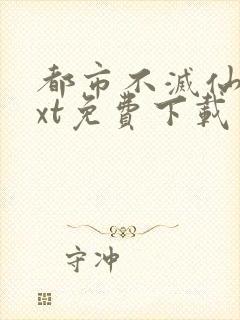 都市不滅仙
xt免費下載
守冲